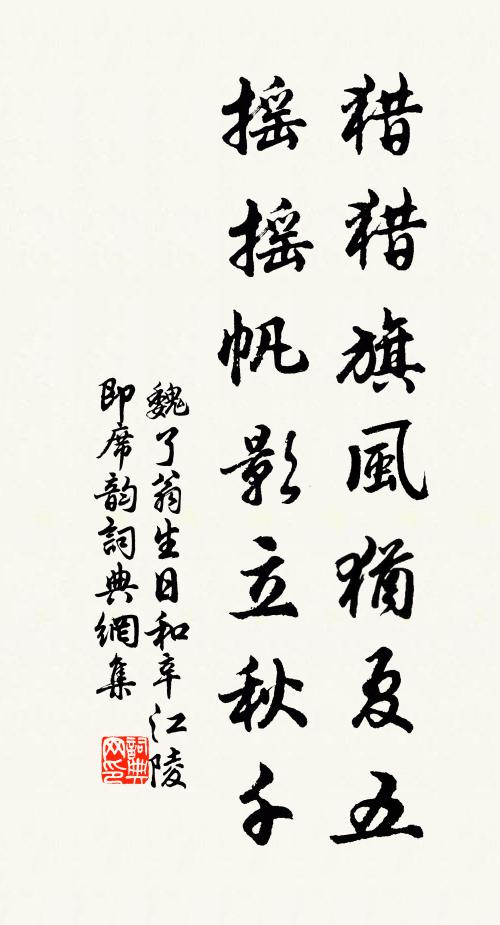 猎猎旗風猶夏五
摇摇帆影立秋千
魏了翁生日和辛江陵
即席韵詞典網集
詞典网印